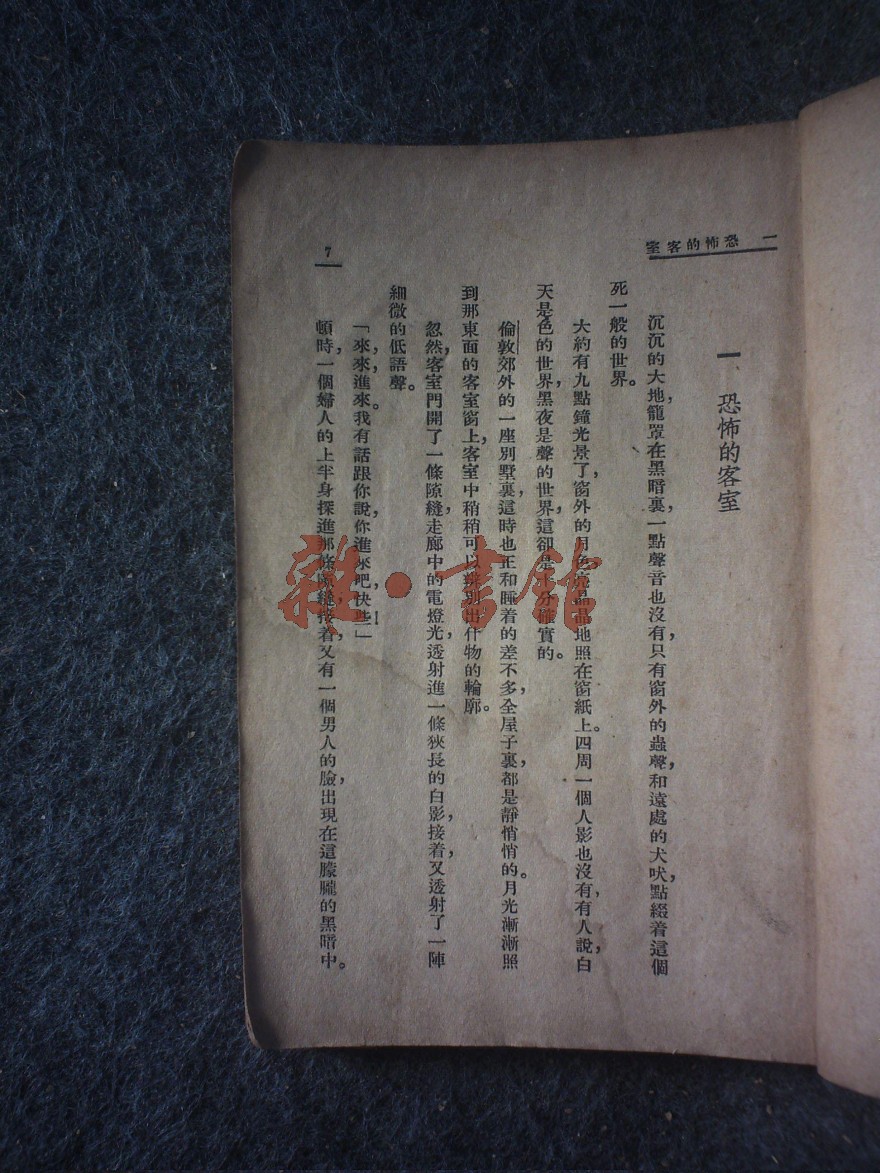 一 恐怖的客室
一 恐怖的客室
沉沉的大地，籠罩在黑暗裏，一點聲音也沒有，只有窗外的蟲聲，和遠處的犬吠，點綴着這個
死一般的世界。
大約有九點鐘光景了，窗外的月色晶晶地照在窗紙上。四周一個人影也沒有，有人說，白
天是色的世界，黑夜是聲的世界，這卻是十分確實的。
倫敦郊外的一座別墅裏，這時也正和睡着的差不多，全屋子裏，都是靜悄悄的。月光漸漸照
到那東面的客室窗上，客室中稍稍可以辨別出什物的輪廓。
忽然，客室門開了一條隙縫，走廊中的電燈光，透射進一條狹長的白影，接着，又透射了一陣
細微的低語聲。
「來，來，進來。我有話跟你說，你進來吧，快些！」
頓時，一個婦人的上半身探進那條隙縫，接着，又有一個男人的臉，出現在這朦朧的黑暗中。
7
雜·書館